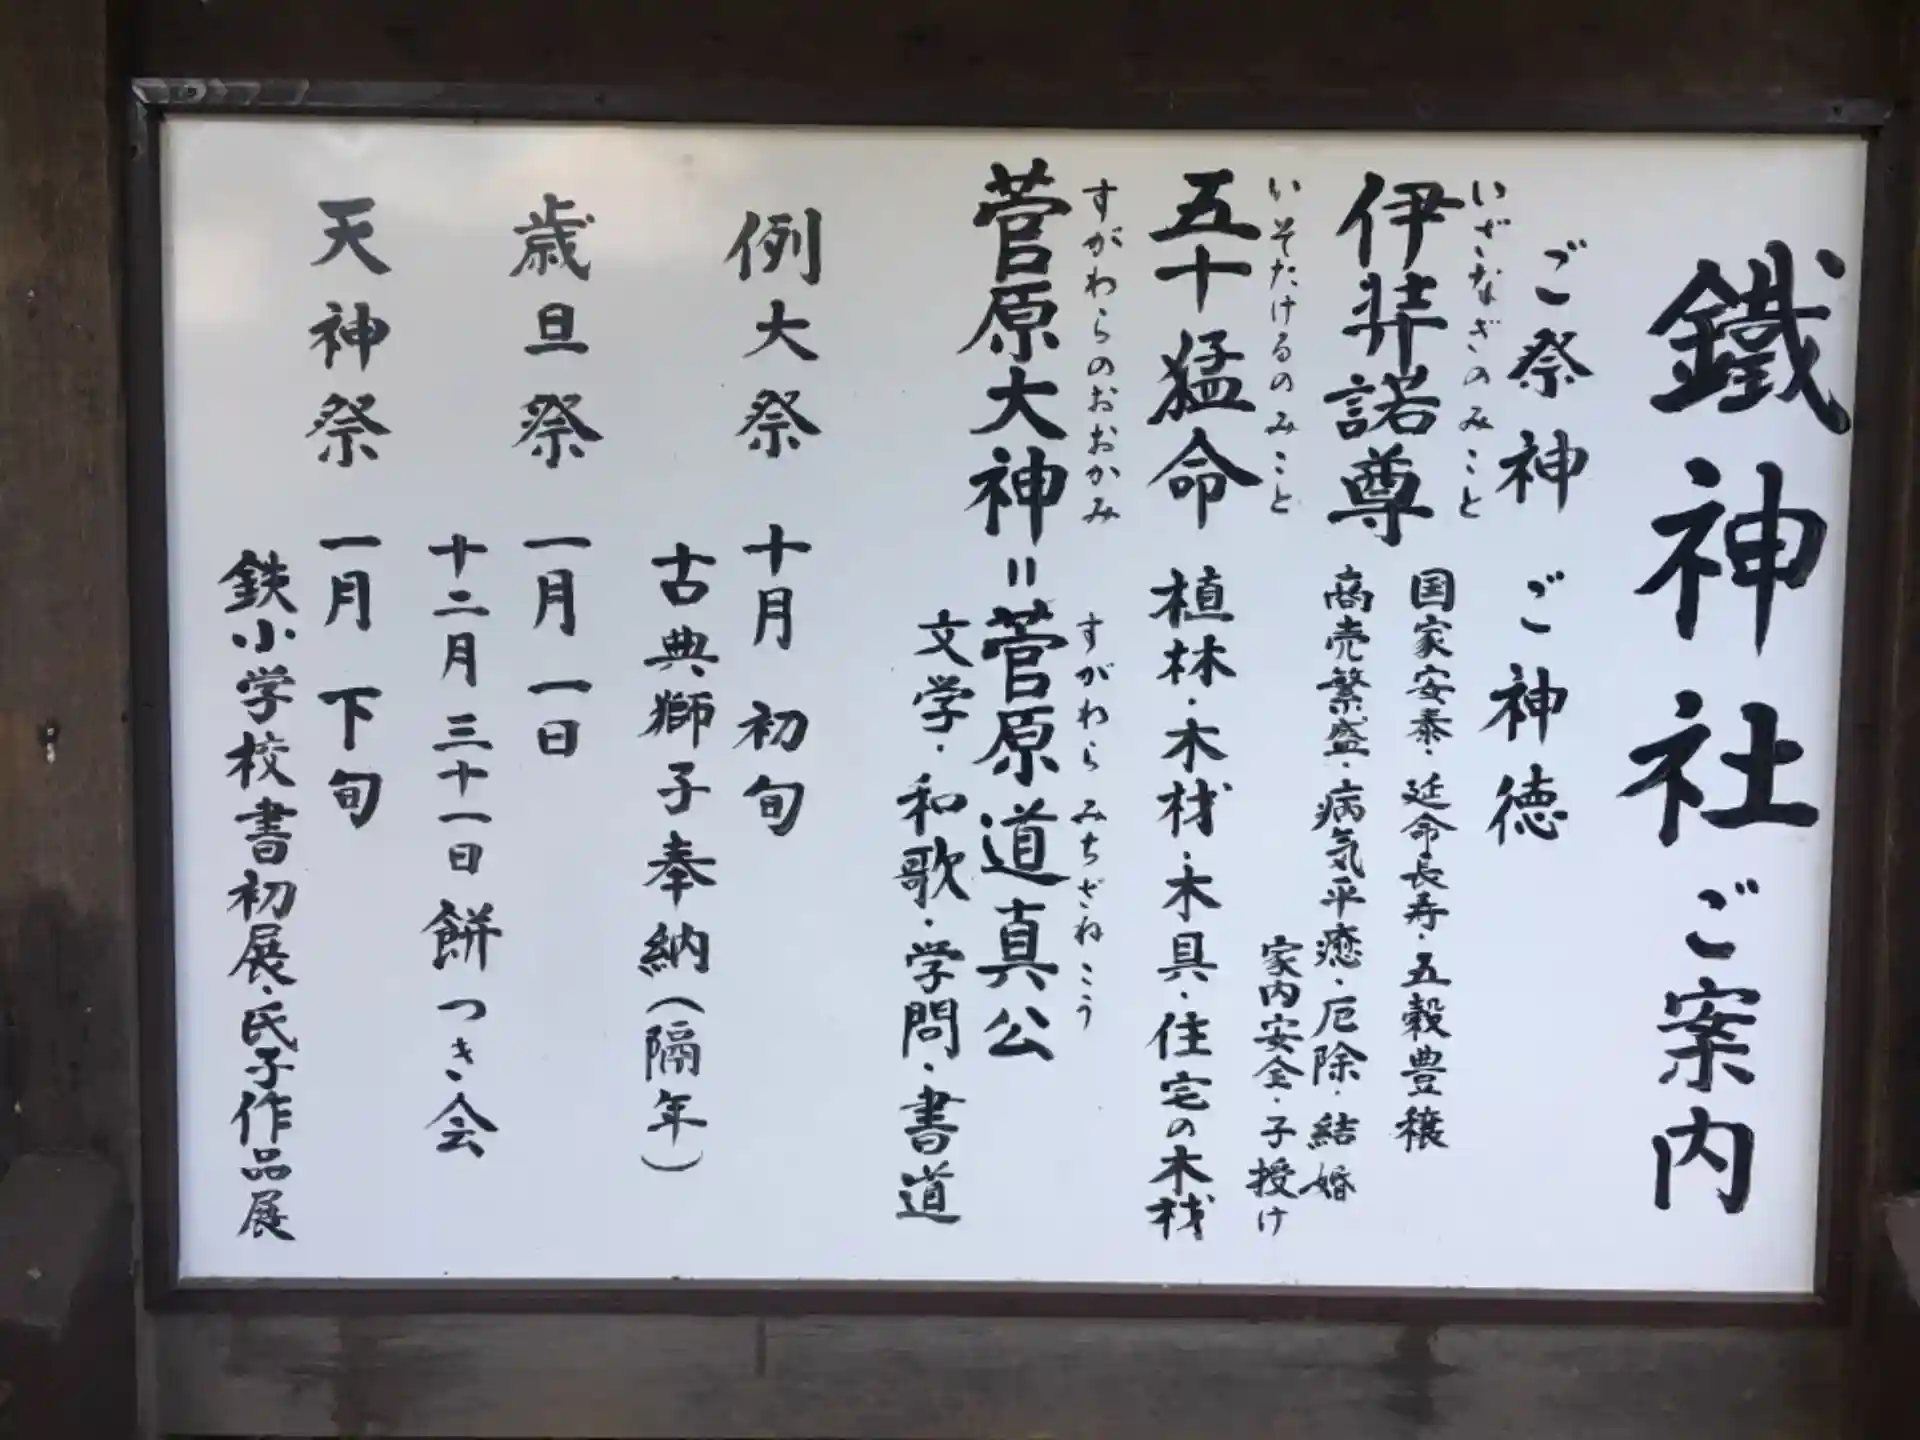 鐵神社ご案内
ご祭神 ご神徳
いざなぎのみこと
伊弉諾尊
国家安泰・延命長寿・五穀豊穣
商売繁盛・病気平癒・厄除・結婚
家内安全・子授け
いそたけるのみこと
五十猛命 植林・木材・木具・住宅の木材
すがわらのおおかみ すがわらみちざねこう
菅原大神=菅原道真公
文学・和歌・学問・書道
例大祭 十月初旬
古典獅子奉納(隔年)
歳旦祭 一月一日
十二月三十一日餅つき会
天神祭 一月下旬
鉄小学校書初展・氏子作品展